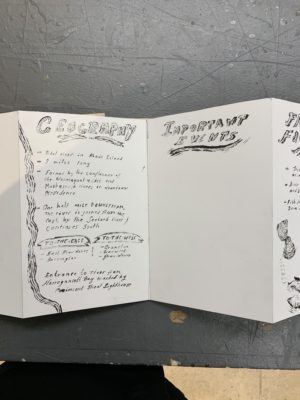 GEOGRAPHY
- Tidal river in Rhode Island
- 8 miles long
- Formed by the confluence of
the Woonasquatucket and
Moshassuck rivers in downtown
Providence
- One half mile downstream,
the river is joined from the
east by the Seekonk River &
continues south
TO THE EAST
- East Providence
- Barrington
TO THE WEST
- Cranston
- Warwick
- Providence
Entrance to river from
Narragansett Bay marked by
Conimicut Shoal Lighthouse
IMPORTANT
EVENTS